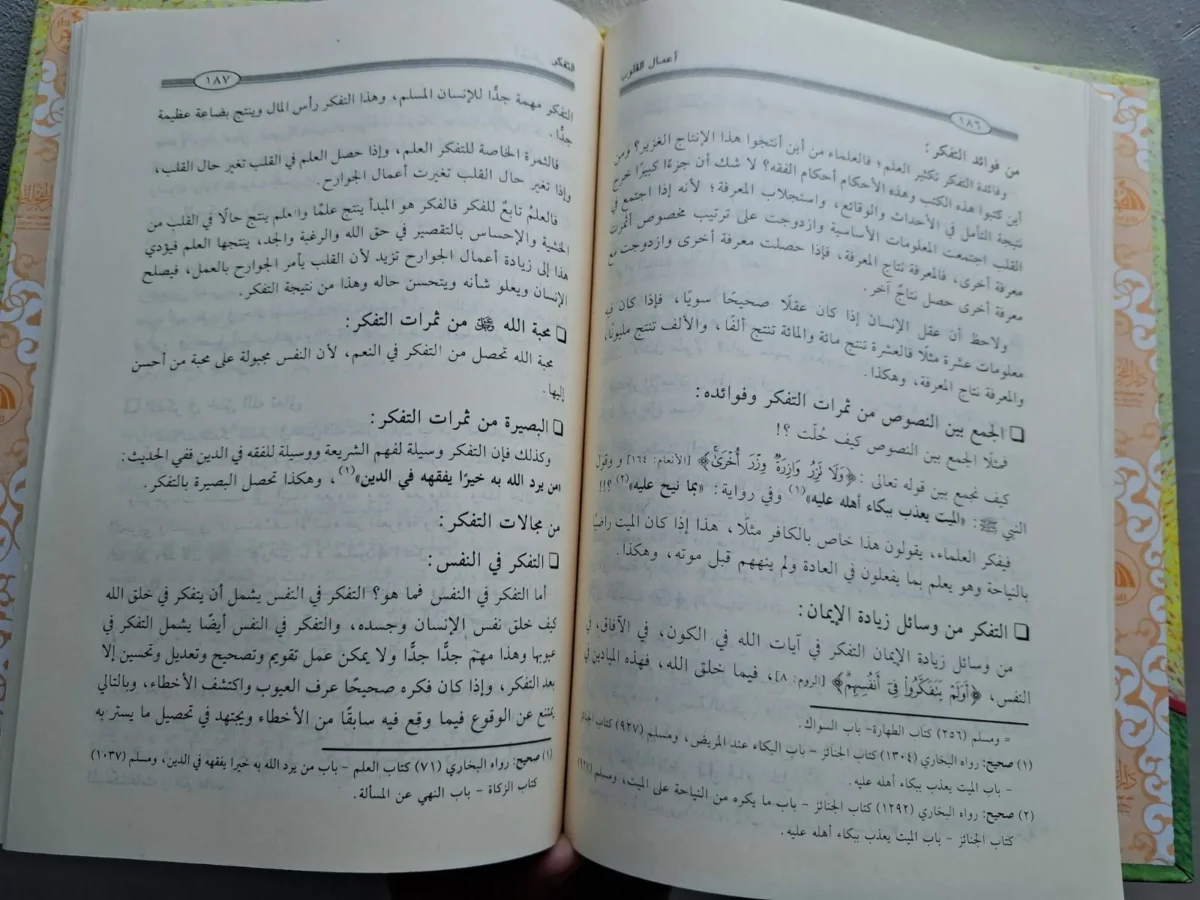 أعمال القلوب
١٨٦
من فوائد التفكر:
وفائدة التفكر تكثير العلم؛ فالعلماء من أين أنتجوا هذا الإنتاج الغزير؟ ومن
أين كتبوا هذه الكتب وهذه الأحكام أحكام الفقه؟ لا شك أن جزءًا كبيرًا خرج
نتيجة التأمل في الأحداث والوقائع، واستجلاب المعرفة؛ لأنه إذا اجتمع في
القلب اجتمعت المعلومات الأساسية وازدوجت على ترتيب مخصوص أثمرت
معرفة أخرى، فالمعرفة نتاج المعرفة، فإذا حصلت معرفة أخرى وازدوجت مع
معرفة أخرى حصل نتاجٌ آخر.
ولاحظ أن عقل الإنسان إذا كان عقلًا صحيحًا سويًا، فإذا كان في
معلومات عشرة مثلًا فالعشرة تنتج مائة والمائة تنتج ألفًا، والألف تنتج مليونًا،
والمعرفة نتاج المعرفة، وهكذا.
❏ الجمع بين النصوص من ثمرات التفكر وفوائده:
فمثلًا الجمع بين النصوص كيف حُلّت ؟!
كيف نجمع بين قوله تعالى: ﴿وَلَا تَزِرُ وَازِرَةٌ وِزْرَ أُخْرَىٰ﴾ [الأنعام: ١٦٤] و وقول
النبي ﷺ: «الميت يعذب ببكاء أهله عليه»(١) وفي رواية: «بما نيح عليه»(٢) ؟!!
فيفكر العلماء، يقولون هذا خاص بالكافر مثلًا، هذا إذا كان الميت راضيًا
بالنياحة وهو يعلم بما يفعلون في العادة ولم ينههم قبل موته، وهكذا.
❏ التفكر من وسائل زيادة الإيمان:
من وسائل زيادة الإيمان التفكر في آيات الله في الكون، في الآفاق، في
النفس، ﴿أَوَلَمْ يَتَفَكَّرُوا فِي أَنْفُسِهِمْ﴾ [الروم: ٨]، فيما خلق الله، فهذه الميادين في
= ومسلم (٢٥٦) كتاب الطهارة- باب السواك.
(١) صحيح: رواه البخاري (١٣٠٤) كتاب الجنائز - باب البكاء عند المريض، ومسلم (٩٢٧) كتاب الجنائز
- باب الميت يعذب ببكاء أهله عليه.
(٢) صحيح: رواه البخاري (١٢٩٢) كتاب الجنائز - باب ما يكره من النياحة على الميت، ومسلم
كتاب الجنائز - باب الميت يعذب ببكاء أهله عليه.
التفكر
١٨٧
التفكر مهمة جدًّا للإنسان المسلم، وهذا التفكر رأس المال وينتج بضاعة عظيمة
جدًّا.
فالثمرة الخاصة للتفكر العلم، وإذا حصل العلم في القلب تغير حال القلب،
وإذا تغير حال القلب تغيرت أعمال الجوارح.
فالعلمُ تابعٌ للفكر فالفكر هو المبدأ ينتج علمًا والعلم ينتج حالًا في القلب من
الخشية والإحساس بالتقصير في حق الله والرغبة والجد، ينتجها العلم فيؤدي
هذا إلى زيادة أعمال الجوارح تزيد لأن القلب يأمر الجوارح بالعمل، فيصلح
الإنسان ويعلو شأنه ويتحسن حاله وهذا من نتيجة التفكر.
❏ محبة الله ﷻ من ثمرات التفكر:
محبة الله تحصل من التفكر في النعم، لأن النفس مجبولة على محبة من أحسن
إليها.
❏ البصيرة من ثمرات التفكر:
وكذلك فإن التفكر وسيلة لفهم الشريعة ووسيلة للفقه في الدين ففي الحديث:
«من يرد الله به خيرًا يفقهه في الدين»(١)، وهكذا تحصل البصيرة بالتفكر.
من مجالات التفكر:
❏ التفكر في النفس:
أما التفكر في النفس فما هو؟ التفكر في النفس يشمل أن يتفكر في خلق الله
كيف خلق نفس الإنسان وجسده، والتفكر في النفس أيضًا يشمل التفكر في
عيوبها وهذا مهمّ جدًّا جدًّا ولا يمكن عمل تقويم وتصحيح وتعديل وتحسين إلا
بعد التفكر، وإذا كان فكره صحيحًا عرف العيوب واكتشف الأخطاء، وبالتالي
يمتنع عن الوقوع فيما وقع فيه سابقًا من الأخطاء ويجتهد في تحصيل ما يستر به
(١) صحيح: رواه البخاري (٧١) كتاب العلم - باب من يرد الله به خيرا يفقهه في الدين، ومسلم (١٠٣٧)
كتاب الزكاة - باب النهي عن المسألة.